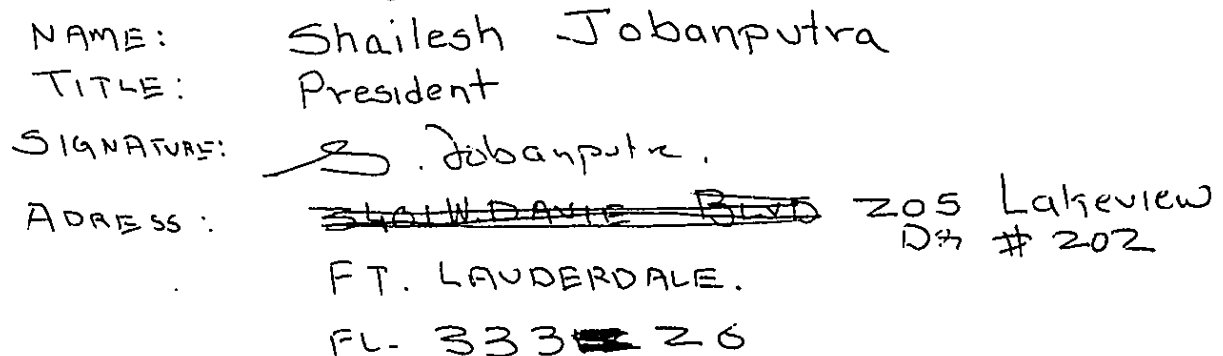 NAME: Shailesh Jobanputra
TITLE: President
SIGNATURE: S. Jobanputra.
ADRESS: 3401 W. DAVIE BLVD 205 Lakeview
Dr # 202
FT. LAUDERDALE.
FL- 333 26